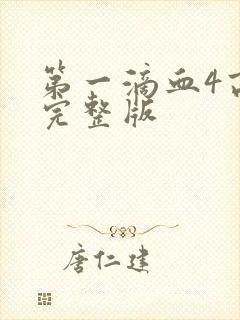 第一滴血4
完整版
唐仁建